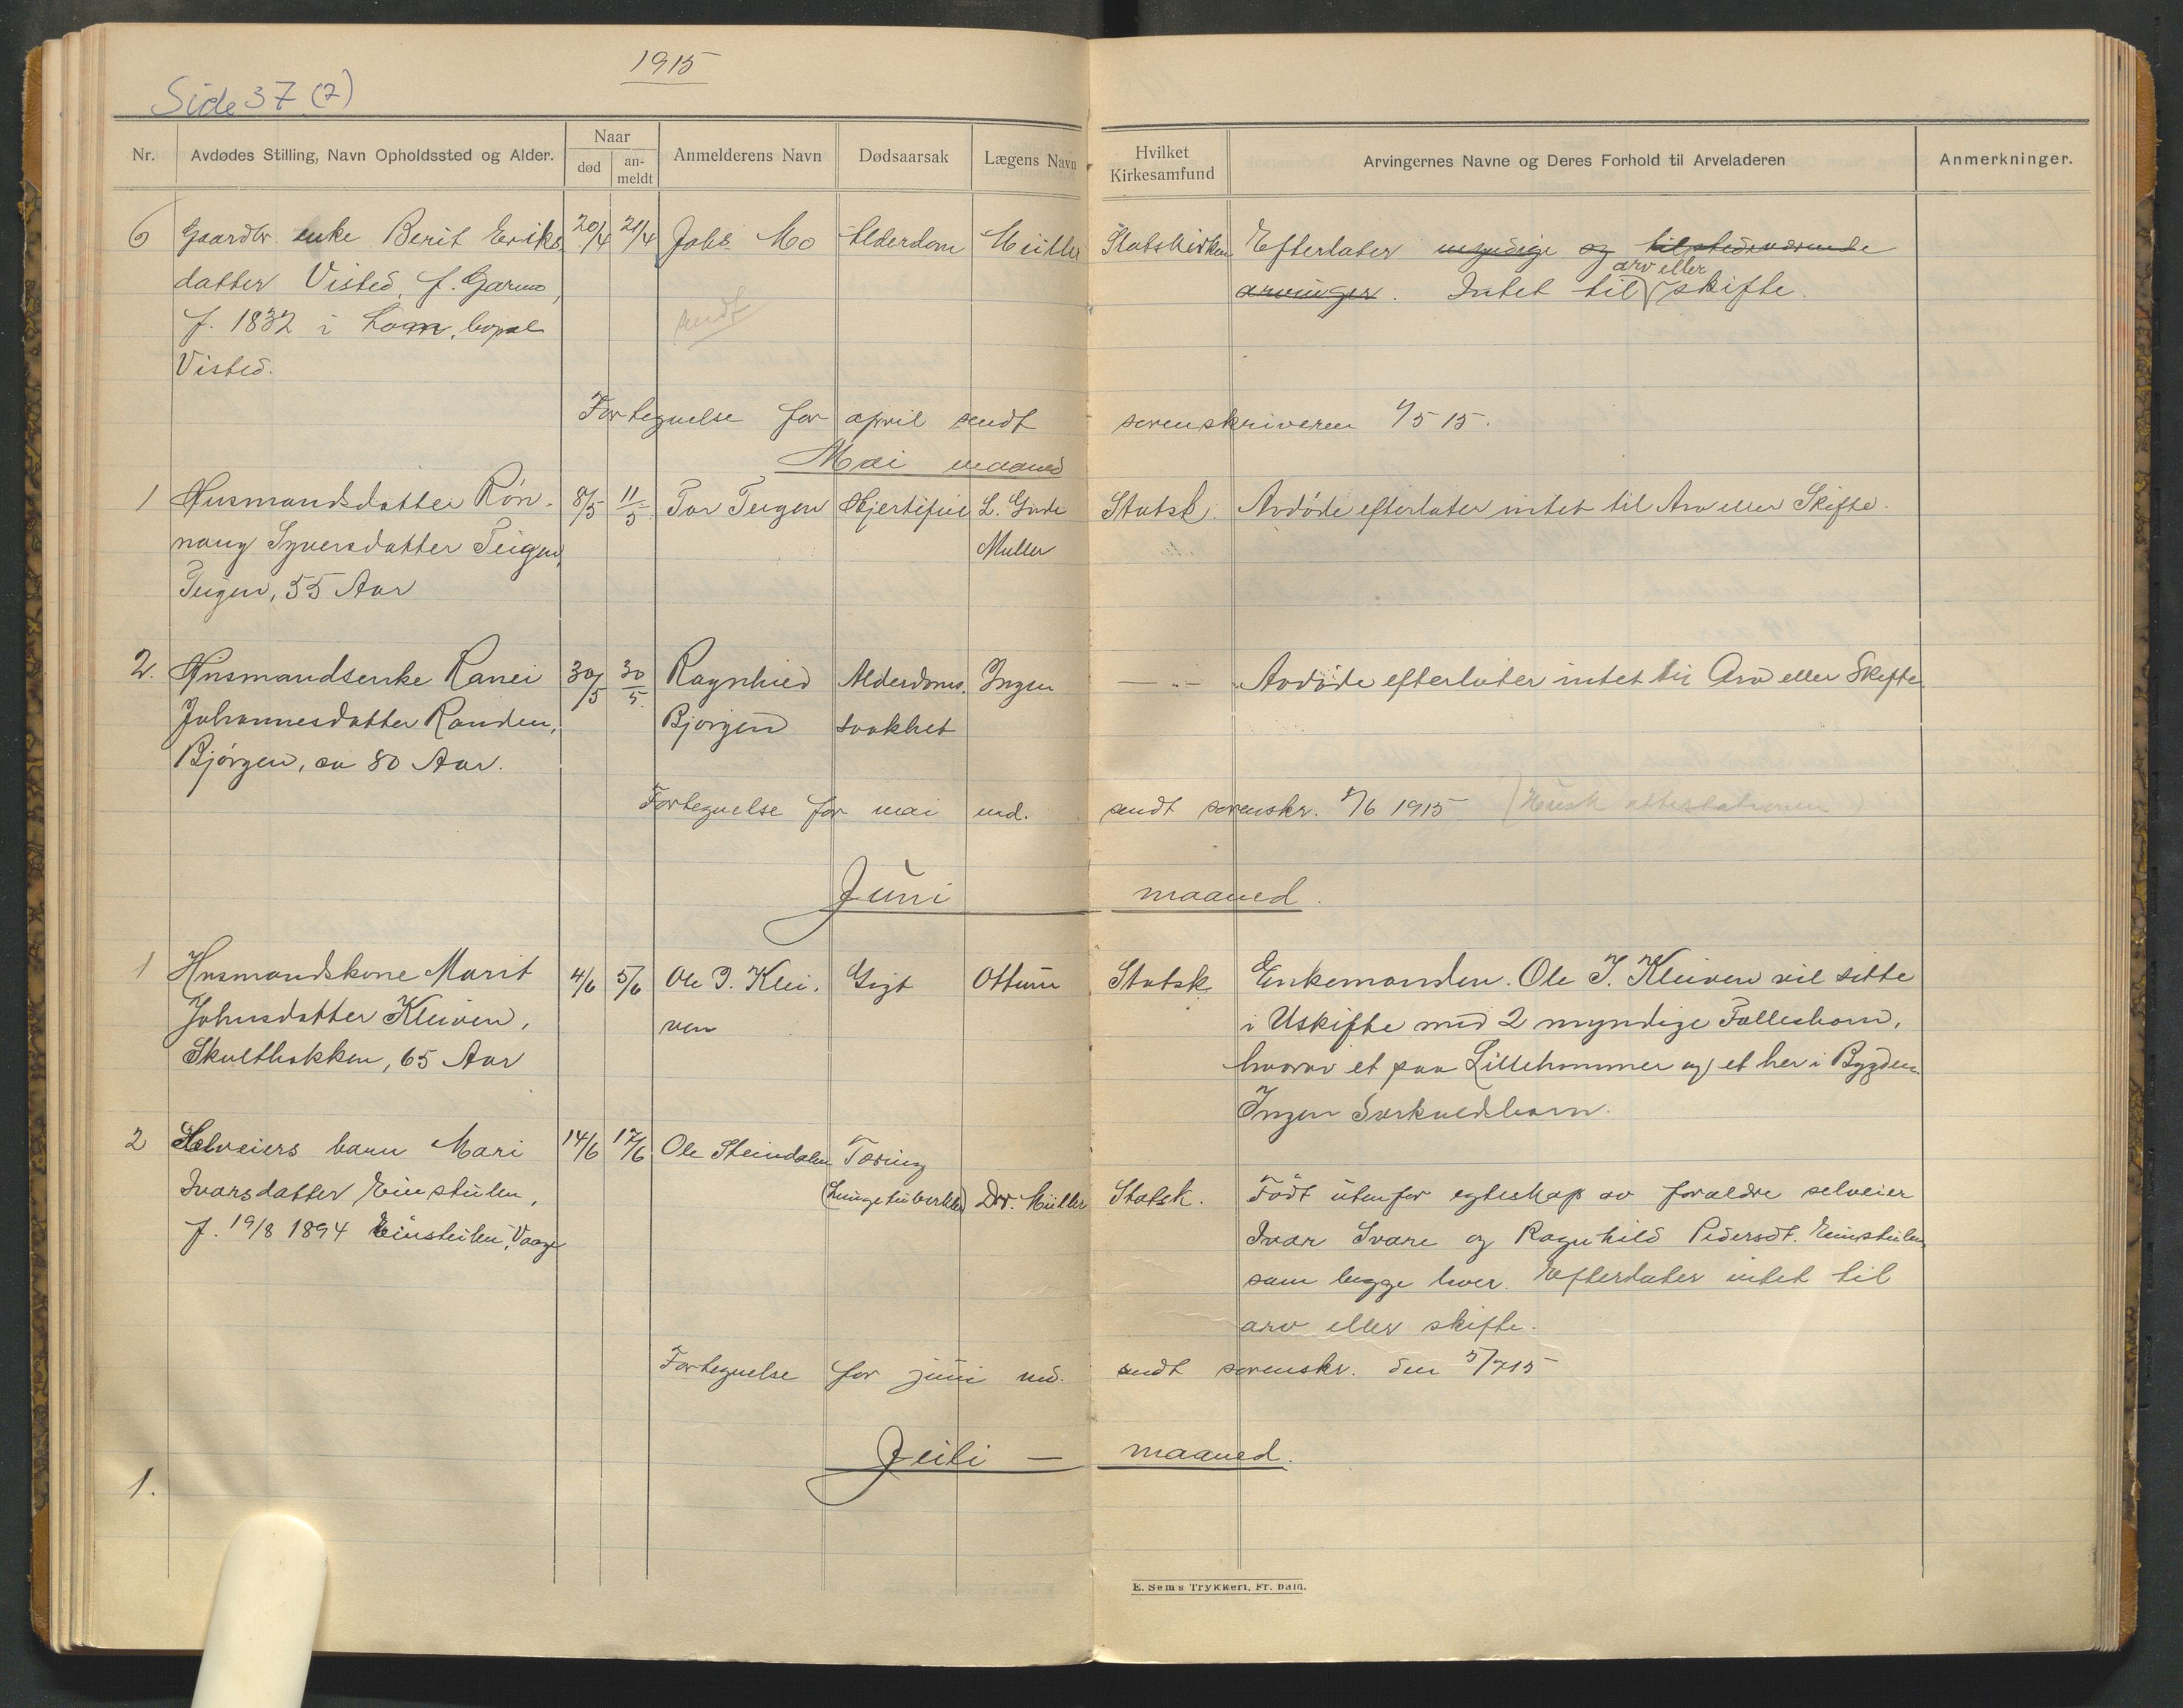 1915
Side 37 (7)
Nr.
Avdødes Stilling, Navn Opholdssted og Alder.
Naar
død
an-
meldt
Anmelderens Navn
Dødsaarsak
Lægens Navn
Hvilket
Kirkesamfund
Arvingernes Navne og Deres Forhold til Arveladeren
Anmerkninger.
6 Gaardbr. enke Beri​t Eriks 20/4 21/4 Johs Mo Alderdom Müller Statskirken Efterlater myndige og tilstedeværende
arv eller
datter Visted, f. Garmo, arvinger. Intet til skifte.
f. 1832 i Lom, bopæl sendt
Visted.
Fortegnelse for april sendt sorenskriveren 1/5 15.
Mai maaned
1 Husmandsdatter Røn- 8/5 11/5 Tor Teigen Hjertefeil L. Gude Statsk. Avdøde efterlater intet til Arv eller Skifte.
naug Syversdatter Teigen, Muller
Teigen, 55 Aar
2. Husmandsenke Ranei 30/5 30/5. Ragnhild Alderdoms- Ingen — " — Avdøde efterlater intet til Arv eller Skifte.
Johannesdatter Randen, Bjørgen svakhet
Bjørgen, ca 80 Aar.
Fortegnelse for mai md. sendt sorenskr. /6 1915 (Husk attestationen)
Juni maaned.
1 Husmandskone Marit 4/6 5/6 Ole J. Klei- Gigt Ottum Statsk. Enkemanden. Ole J. Kleiven vil sitte
Johnsdatter Kleiven, ven i Uskifte med 2 myndige Fællesbarn,
Skultbakken, 65 Aar hvorav et paa Lillehammer og et her i Bygden.
Ingen Særkuldbarn.
2 Selveiers barn Mari 14/6 17/6 Ole Steindalen Tæring
Ivarsdatter Einstulen, (Lungetuberkler) Dr. Müller Statsk. Født utenfor egteskap av forældre selveier
f. 19/8 1894 Einstulen, Vaage Ivar Svare og Ragnhild Pedersdt. Einstulen
som begge lever. Efterlater intet til
arv eller skifte.
Fortegnelse for juni md. sendt sorenskr. den 5/7 15
Juli — maaned.
1.
E. Sem's Trykkeri, Fr. hald.